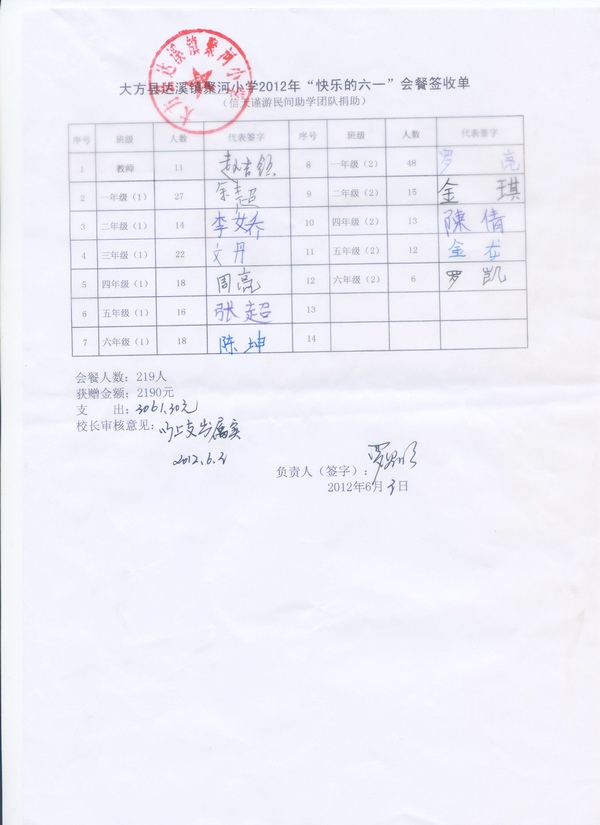 大方县达溪镇聚河小学
大方县达溪镇聚河小学2012年“快乐的六一”会餐签收单
（信天谨游民间助学团队捐助）
序号 班级 人数 代表签字 序号 班级 人数 代表签字
1 教师 11 8 一年级（2） 48 罗亮
2 一年级（1） 27 余超 9 二年级（2） 15 金琪
3 二年级（1） 14 李女乔 10 四年级（2） 13 陳倩
4 三年级（1） 22 文丹 11 五年级（2） 12 金龙
5 四年级（1） 18 周亮 12 六年级（2） 6 罗凯
6 五年级（1） 16 张超 13
7 六年级（1） 18 陈坤 14
会餐人数：219人
获赠金额：2190元
支 出：3061.30元
校长审核意见：以上支出属实
2012.6.3
负责人（签字）：
2012年6月3日